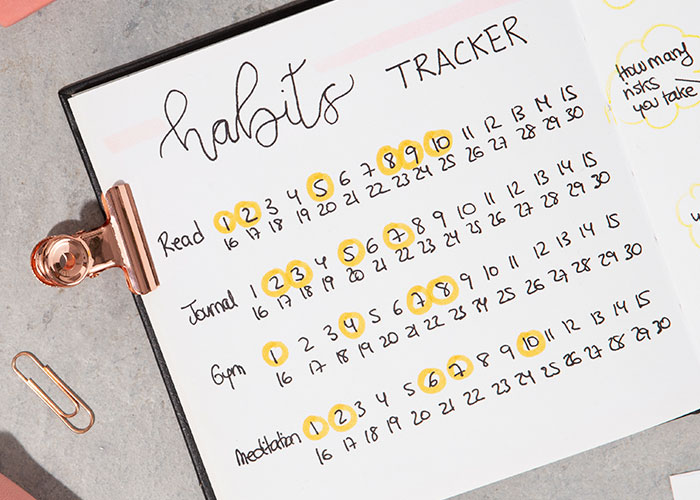 habits TRACKER
Read 1 2 3 4 5 6 7 8 9 10 11 12 13 14 15
16 17 18 19 20 21 22 23 24 25 26 27 28 29 30
Journal 1 2 3 4 5 6 7 8 9 10 11 12 13 14 15
16 17 18 19 20 21 22 23 24 25 26 27 28 29 30
Gym 1 2 3 4 5 6 7 8 9 10 11 12 13 14 15
16 17 18 19 20 21 22 23 24 25 26 27 28 29 30
Meditation 1 2 3 4 5 6 7 8 9 10 11 12 13 14 15
16 17 18 19 20 21 22 23 24 25 26 27 28 29 30
How many
risks
you take